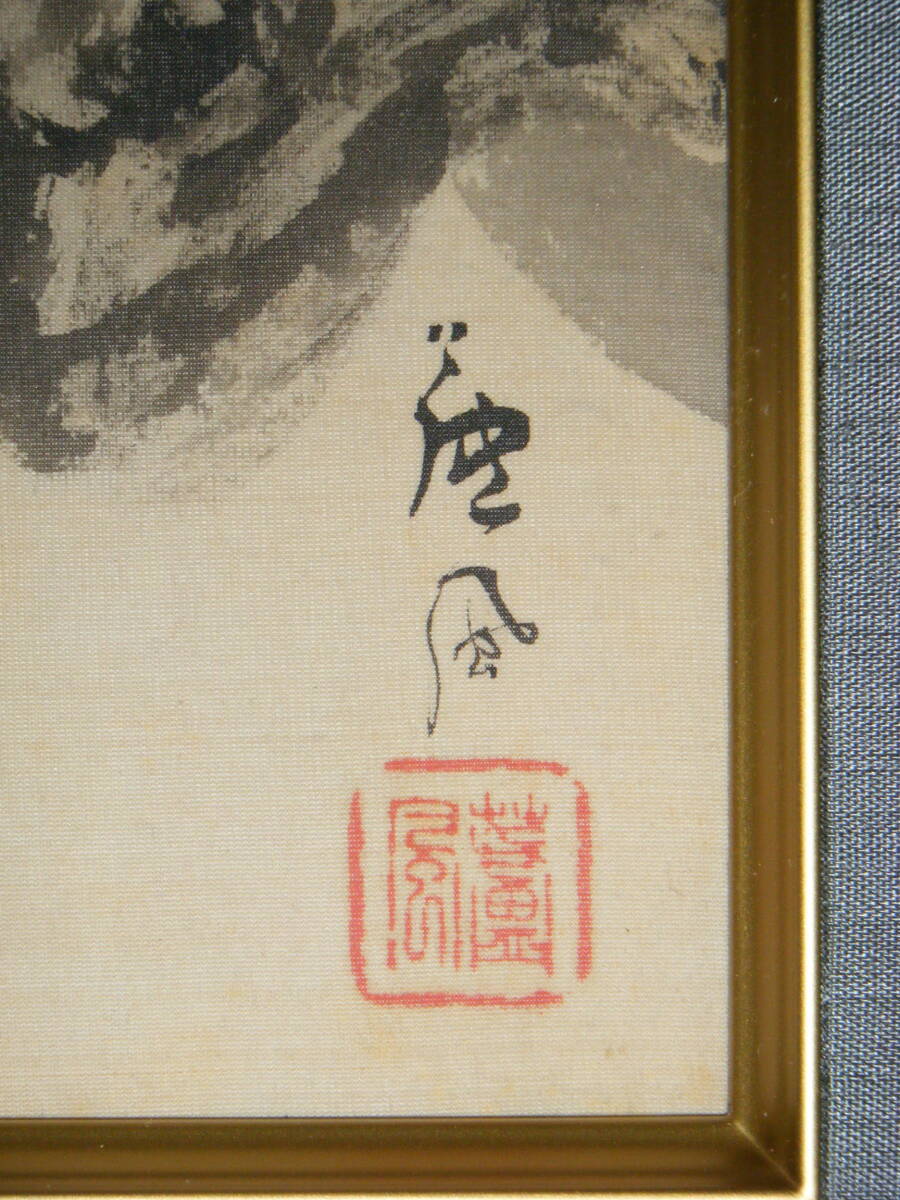 蘆風
蘆風